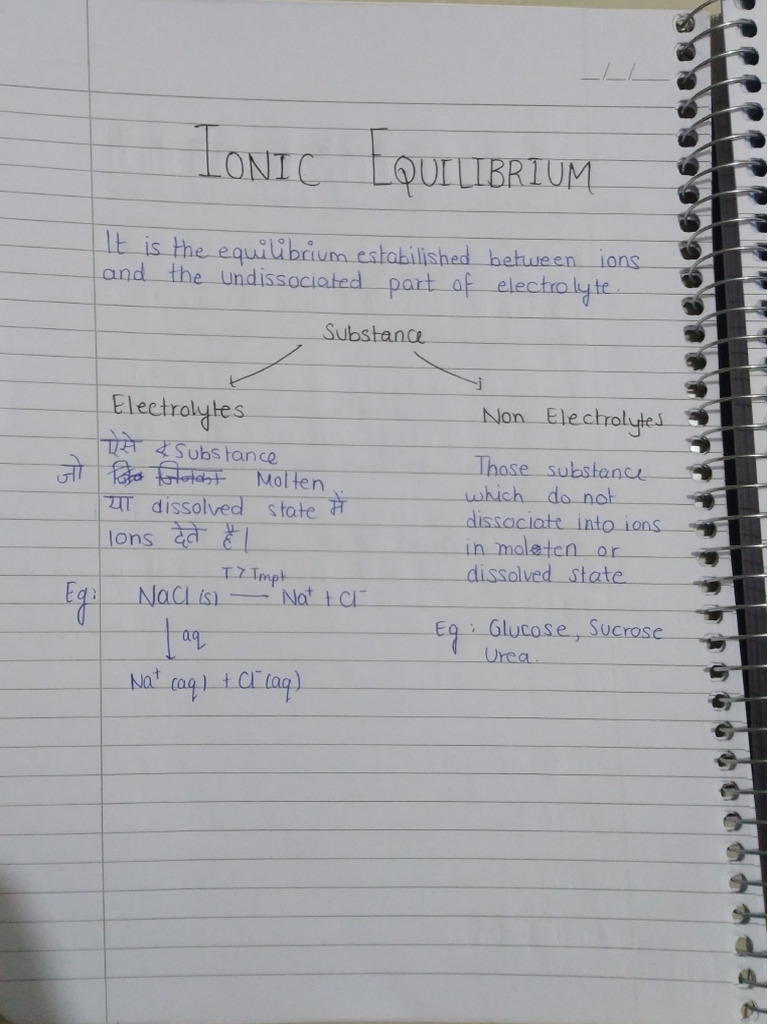 _/_/__
IONIC EQUILIBRIUM
It is the equilibrium estabilished between ions
and the undissociated part of electrolyte.
Substance
Electrolytes
ऐसे Substance
जो Molten
या dissolved state में
Ions देते है।
Eg: NaCl (s) T > Tmpt Na⁺ + Cl⁻
aq
Na⁺ (aq) + Cl⁻ (aq)
Non Electrolytes
Those substance
which do not
dissociate into ions
in molten or
dissolved state
Eg : Glucose, Sucrose
Urea.